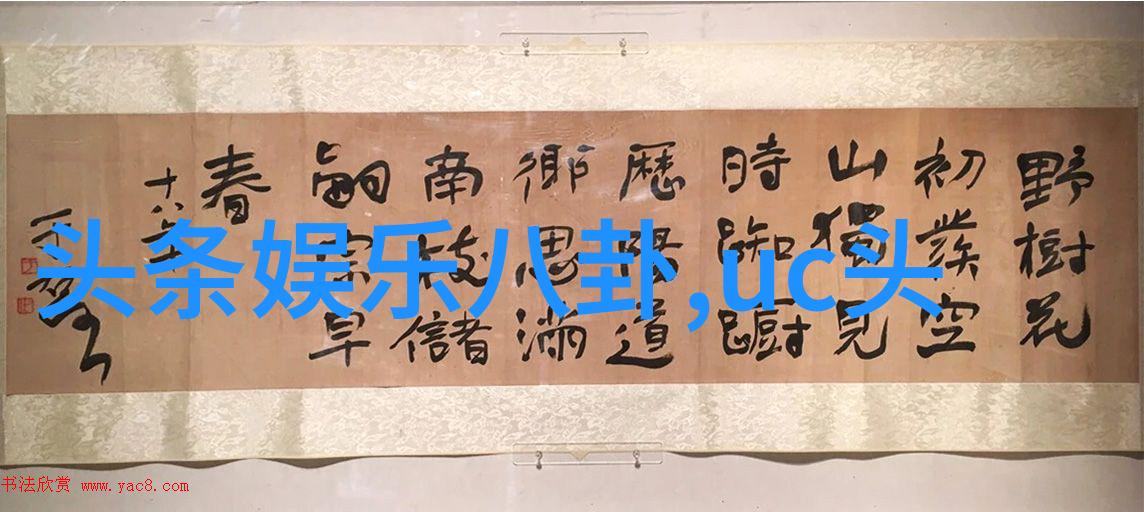 野樹花
初發空
山獨見
時踟躕
歷陽道
鄉思滿
南枝儲
嗣宗早
春
头条娱乐八卦,uc头
书法欣赏 www.yac8.com